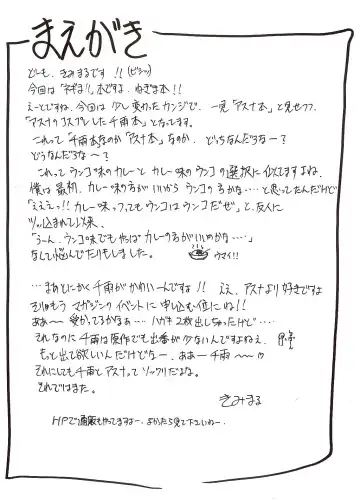 まえがき
どーも、きみまるです!!(ビシッ)
今回は「ネギま!」本ですよ、ねぎま本!!
えーとですね、今回は少し変わったカンジで、一見「アスナ本」と見せつつ、
「アスナのコスプレした千雨本」となってます。
これって「千雨本なのか「アスナ本」なのか、どっちなんだろなー?
どうなんだろな〜?
これってウンコ味のカレーとカレー味のウンコの選択に似てますよね、
僕は最初、カレー味の方が良いからウンコの方かな…と思ってたんだけど
「えええっ!!カレー味っつってもウンコはウンコだぜ」と、友人に
ツッ込まれて以来、
「うーん、ウンコ味でもやっぱカレーの方がいいのかな…」
なんて悩んでたりもしました。
ウマイ!!
…まあとにかく千雨がかわいーんですよ!!ええ、アスナより好きですよ
そりゃもうマガジンのイベントに申し込む位にね!!
ああ〜愛かってるかなぁ…ハガキ2枚出しちゃったけど…
それなのに千雨は原作でも出番が少ないんですよねえ、
もっと出て欲しいんだけどなー、ああー千雨〜
それにしても千雨とアスナってソックリだよな。
それではまた。
きみまる
HPで通販もやってますよー、よかったら見て下さいねー。